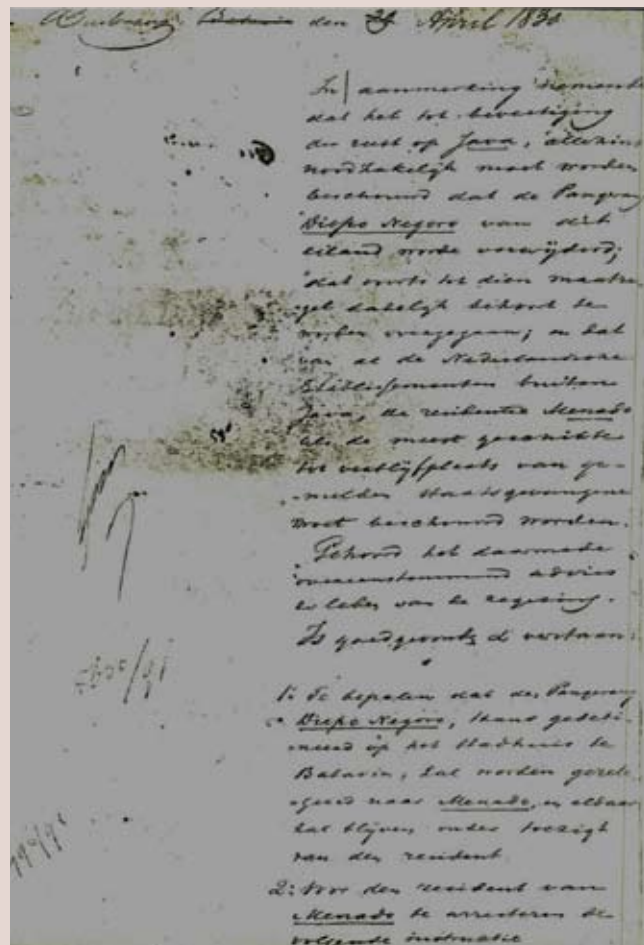 Buitenzorg den April 1830
In aanmerking nemende
dat het tot bevestiging
der rust op Java, allezins
noodzakelijk moet worden
beschouwd dat de Pangerang
Diepo Negoro van dit
eiland worde verwijderd;
dat voorts tot dien maatre-
gel dadelijk behoort te
worden overgegaan; en dat
van al de Nederlandsche
Etablissementen buiten
Java, de residentie Menado
als de meest geschikte
tot verblijfplaats van ge-
melden staatsgevangene
moet beschouwd worden.
Gehoord het daarmede
overeenstemmend advies
der leden van de regering.
Is goedgevonden & verstaan:
1: Te bepalen dat de Pangerang
Diepo Negoro, thans gedeti-
neerd op het Stadhuis te
Batavia, zal worden gerele-
geerd naar Menado, en aldaar
zal blijven onder toezigt
van den resident
2: Voor den resident van
Menado te arresteren de
volgende instructie